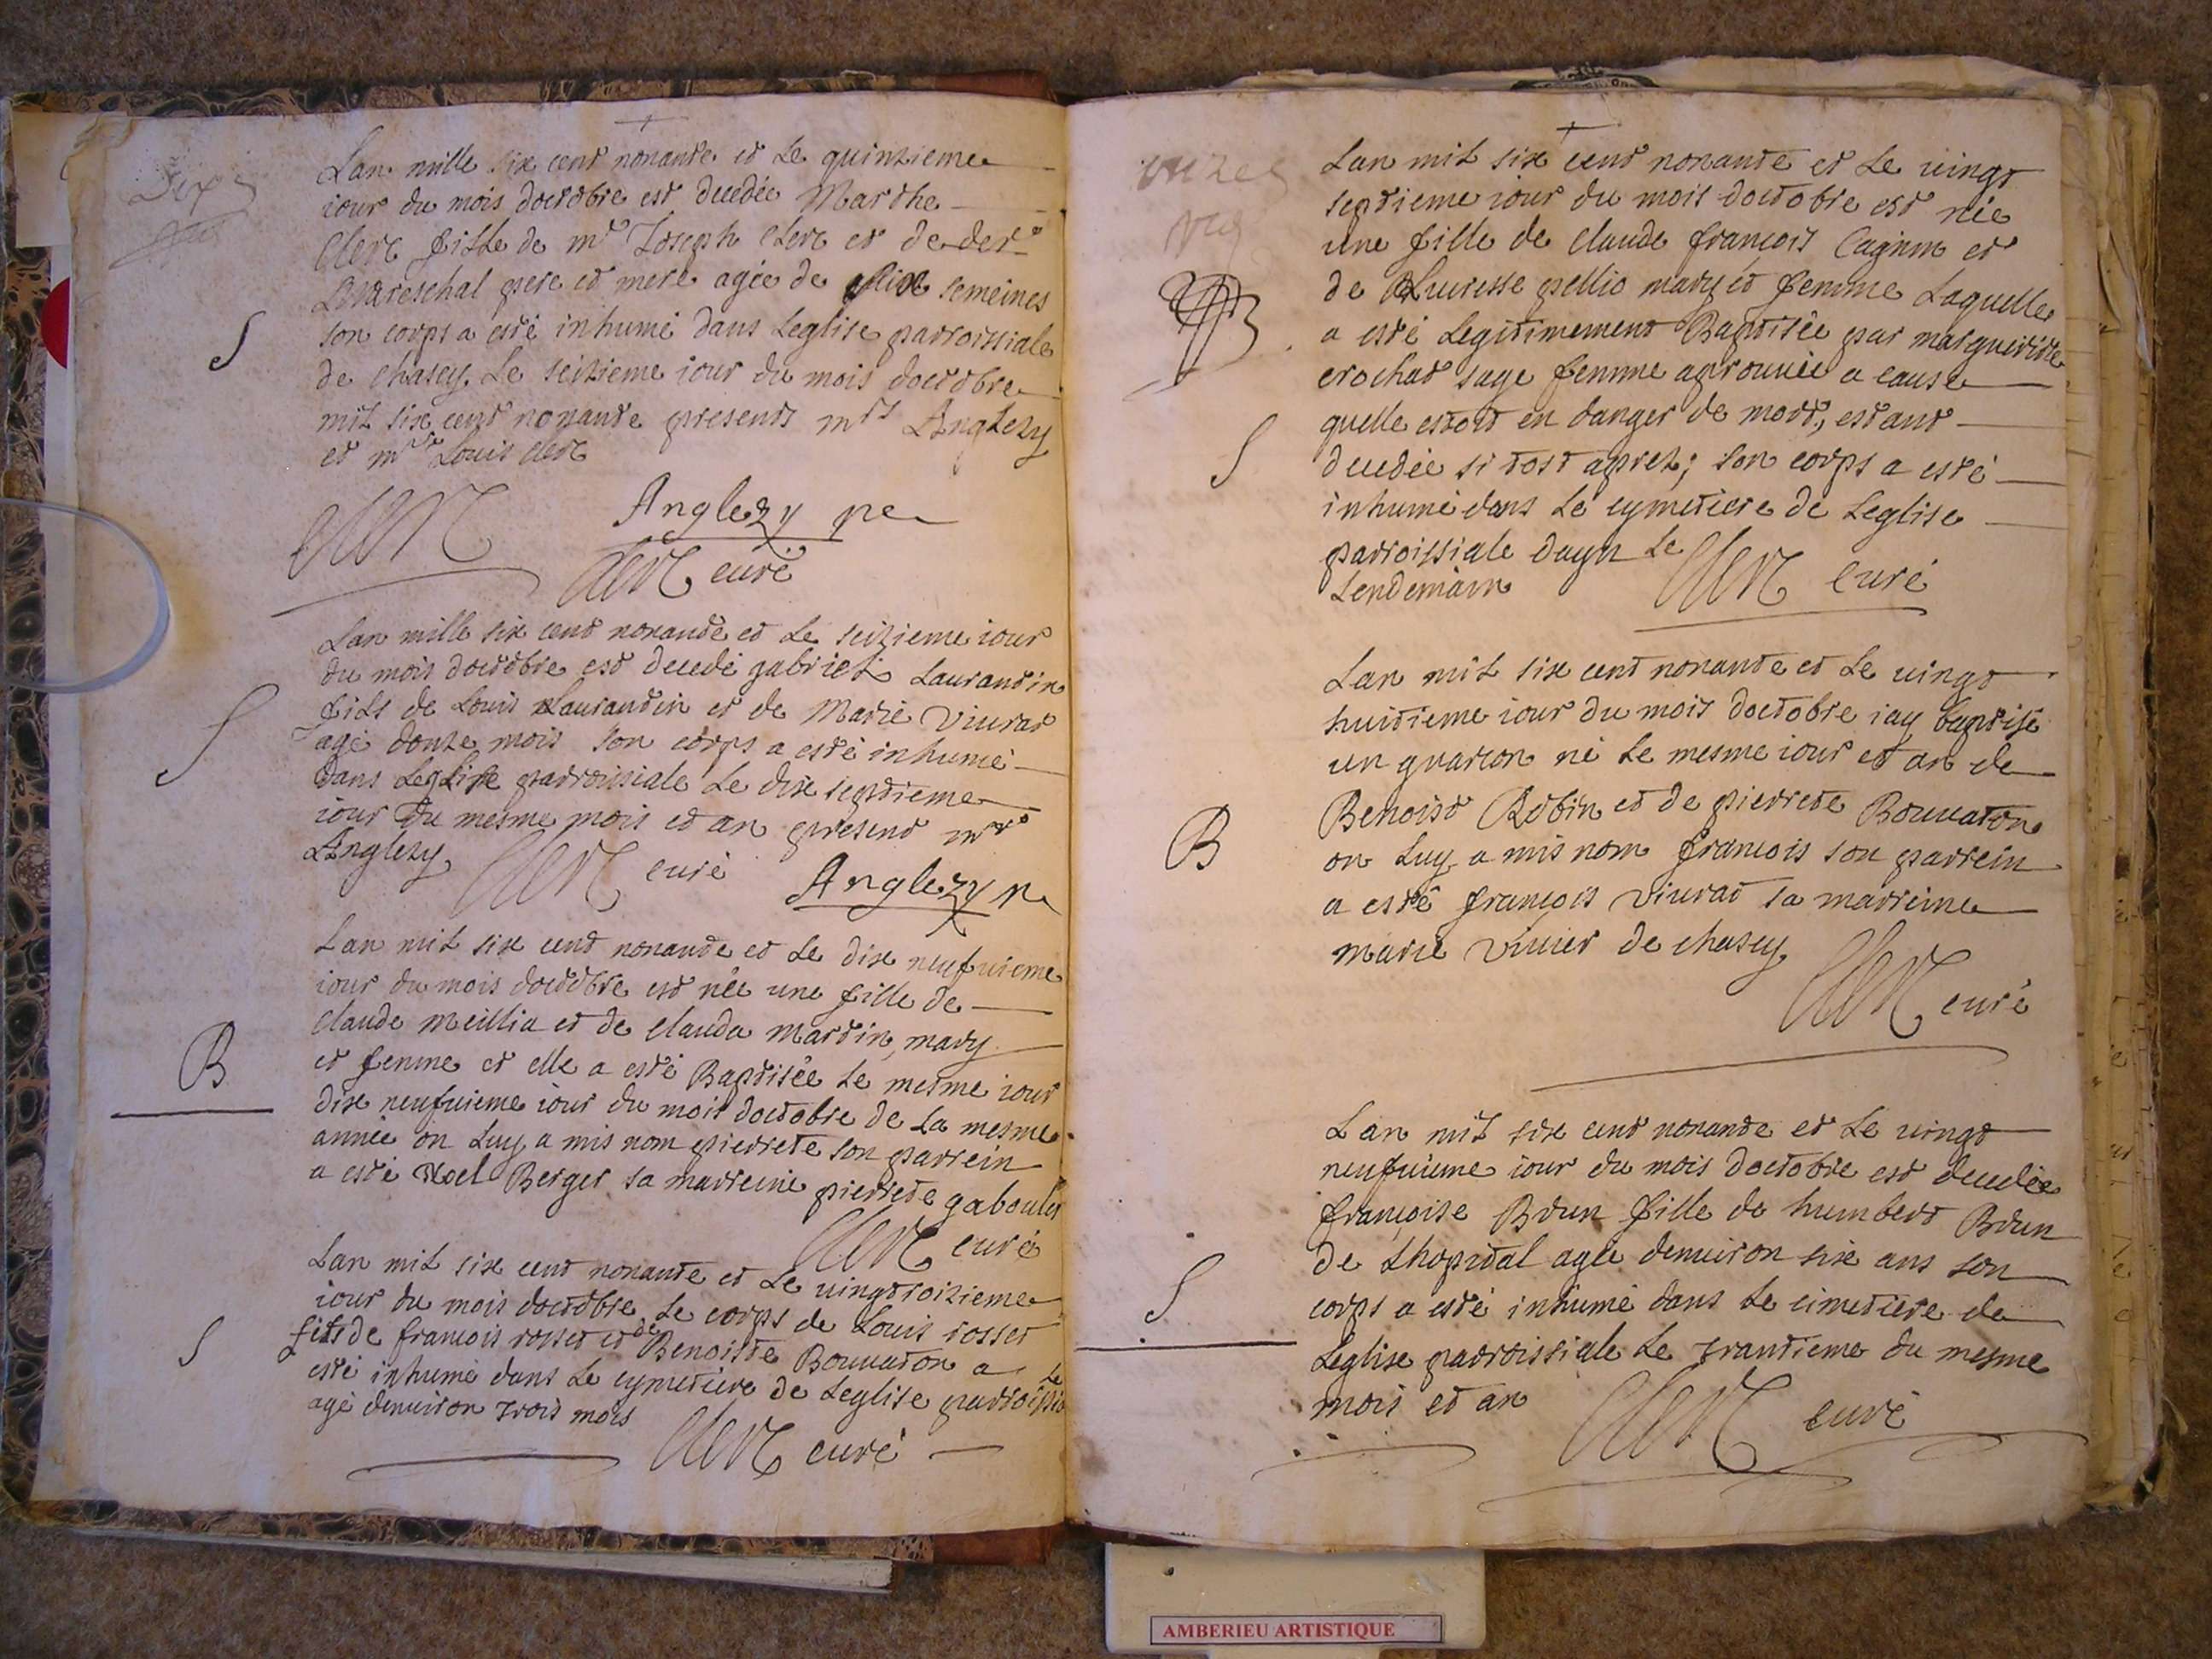 Lan mille six cent nonante et Le quinzieme
iour du mois doctobre est decedée Marthe
Clerc fille de mr Joseph Clerc et de
Mareschal pere et mere agée de six semeines
son corps a esté inhumé dans Leglise parroissiale
de chasey Le seizieme iour du mois doctobre
mil six cent nonante presents mrs Anglezy
et mre Louis clerc
Clerc
Anglezy
Clerc curé
S
Lan mille six cent nonante et Le seizieme iour
du mois doctobre est decedé gabriel Laurandin
fils de Louis Laurandin et de Marie Viurat
agé donze mois son corps a esté inhumé
dans Leglise parroissiale Le dix septieme
iour du mesme mois et an present mre
Anglezy
Clerc curé
Anglezy
S
Lan mil six cent nonante et Le dix neufuieme
iour du mois doctobre est née une fille de
Claude Meillia et de Clauda Martin, mary
et femme et elle a esté Baptisée Le mesme iour
dix neufuieme iour du mois doctobre de La mesme
année on Luy a mis nom pierrete son parrein
a esté Noel Berger sa marreine pierrete gaboulet
Clerc curé
B
Lan mil six cent nonante et Le vingtroizieme
iour du mois doctobre Le corps de Louis rosset
fils de francois rosset et de Benoitte Bouuaton a
esté inhumé dans Le cymetiere de Leglise parroissiale
agé denuiron trois mois
Clerc curé
S
Lan mil six cent nonante et Le vingt
septieme iour du mois doctobre est née
une fille de Claude francois Cagnin et
de Lucresse pellio mary et femme Laquelle
a esté Legitimement Baptisée par margueritte
crochat sage femme aprouuée a cause
quelle estoit en danger de mort, estant
decedée si tost aprez; son corps a esté
inhumé dans Le cymetiere de Leglise
parroissiale dayn Le
Lendemain
Clerc Curé
S
Lan mil six cent nonante et Le vingt
huitieme iour du mois doctobre iay baptisé
un guarcon né Le mesme iour et an de
Benoist Robin et de pierrete Bouuaton
on Luy a mis nom francois son parrein
a esté françois Viurat sa marreine
marie Viuier de chasey
Clerc curé
B
Lan mil six cent nonante et Le vingt
neufuieme iour du mois doctobre est decedée
françoise Brun fille de humbert Brun
de Lhopital agée denuiron six ans son
corps a esté inhumé dans Le cimetiere de
Leglise parroissiale Le trantieme du mesme
mois et an
Clerc curé
S
AMBERIEU ARTISTIQUE